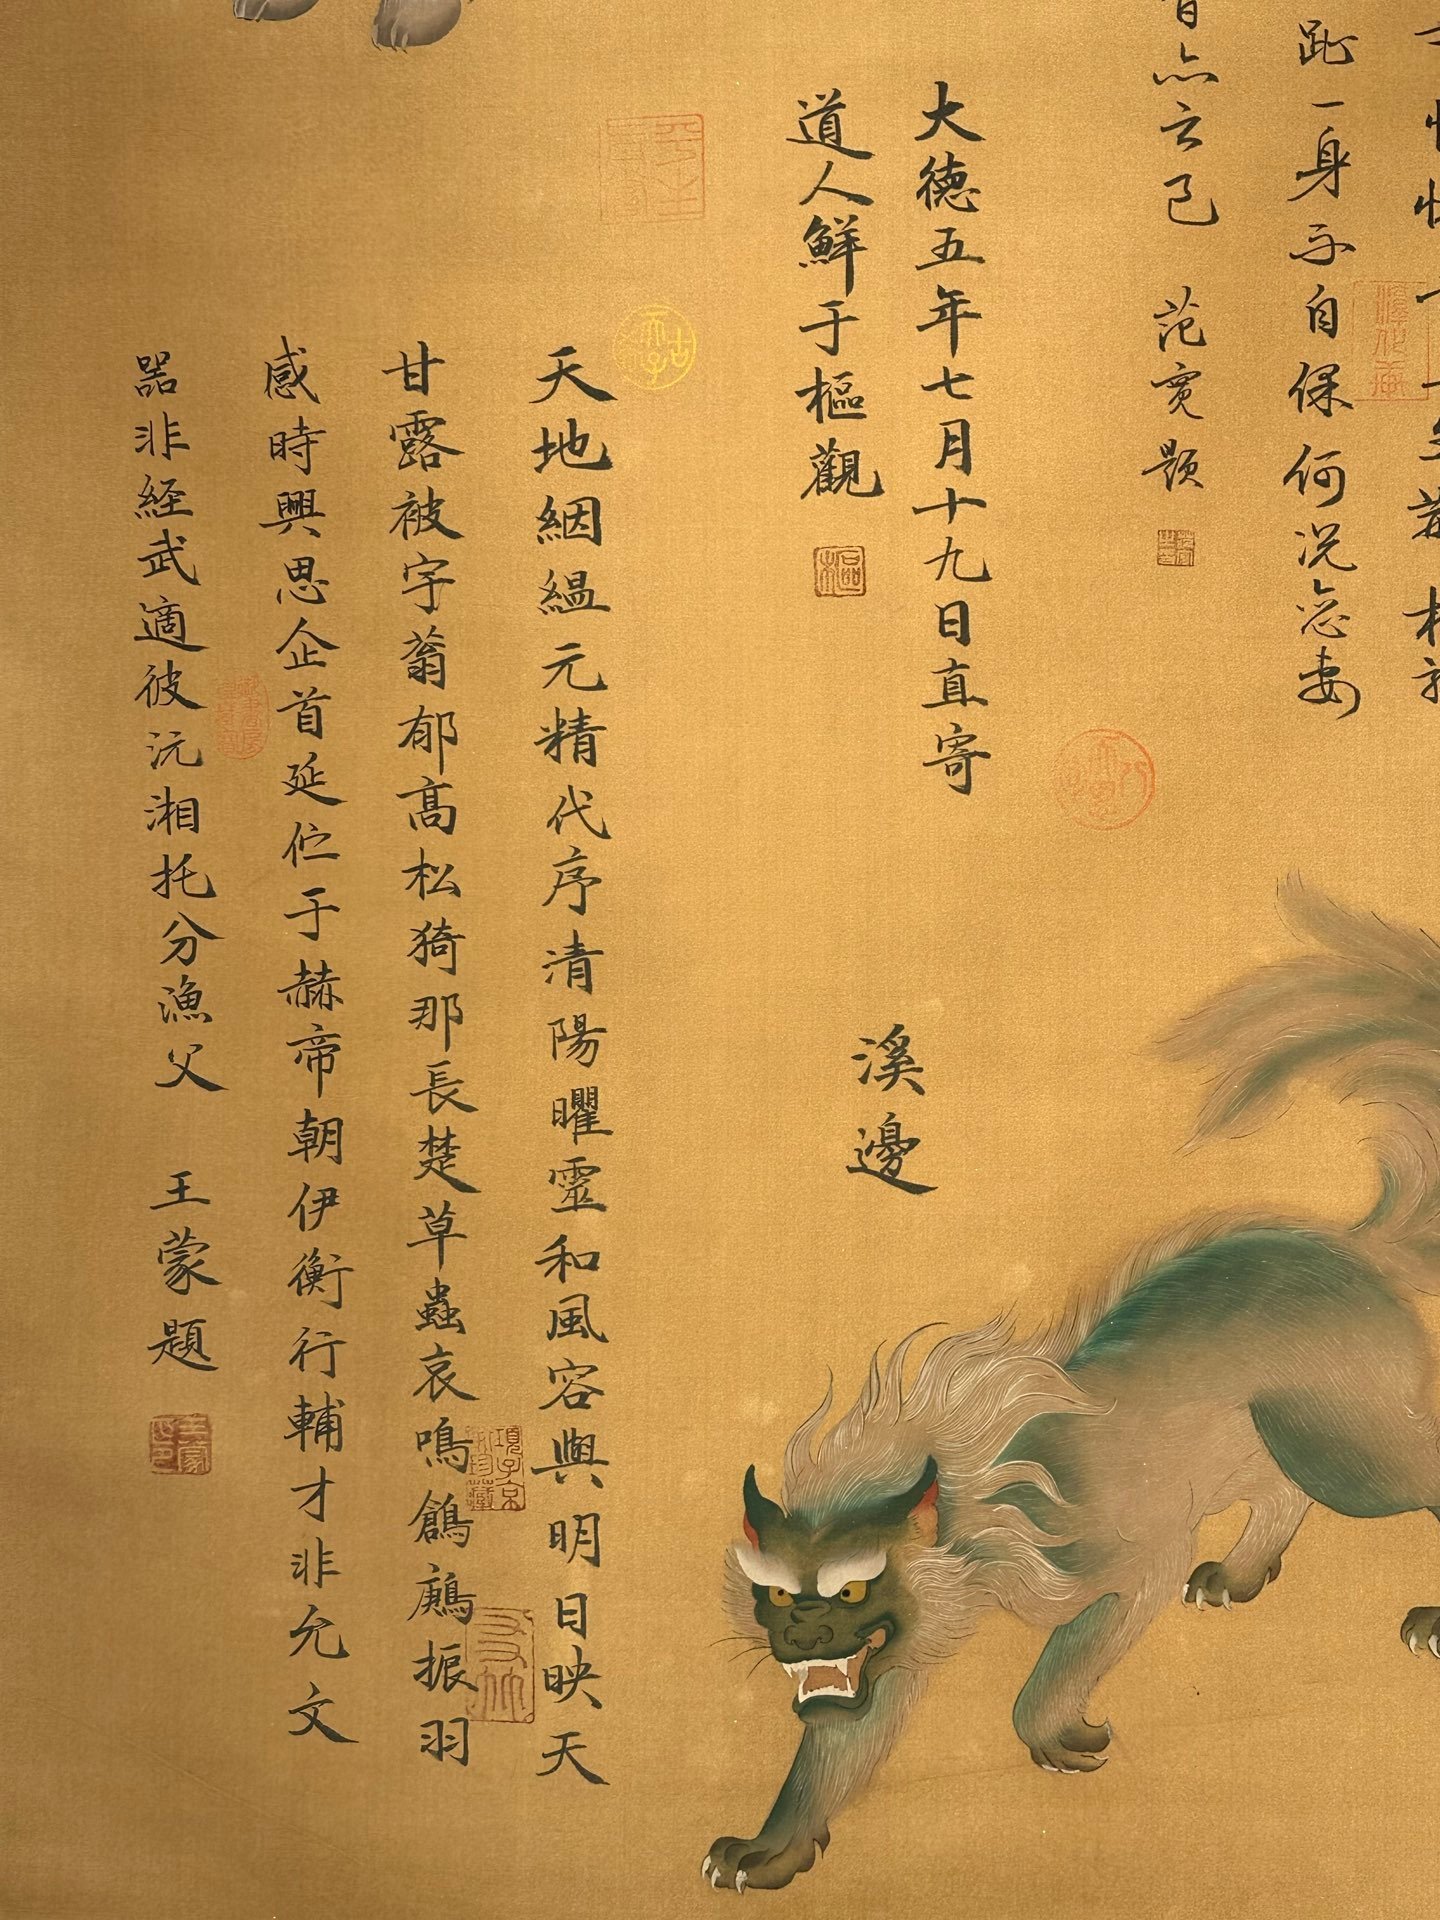 趾一身不自保何况恋妻
亦云已 范宽题
大德五年七月十九日直寄
道人鮮于樞觀
樞
溪邊
天地絪縕元精代序清陽曜靈和風容與明日映天
甘露被宇蓊郁高松猗那長楚草蟲哀鳴鶬鶊振羽
感時興思企首延伫于赫帝朝伊衡行輔才非允文
器非経武適彼沅湘托分漁父 王蒙題
項子京